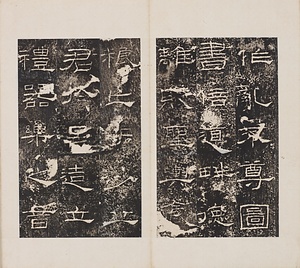 作亂不尊圖
書倍道畔德
離敗聖輿食
糧亡于沙丘
君於是造立
禮器樂之音